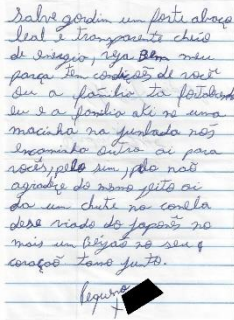 Salve gordim um forte abraço
leal e transparente cheio
de energia, veja Bem meu
parça tem condições de você
ou a familia ta fortalecendo
eu e a familia ate no uma
macinha na juntada nós
encaminha outra ai para
vocês, pelo sim, pelo não
agradeçe do mesmo jeito ai
da um chute na canela
dese viado do Japonês no
mais um Beijão no seu
coração tamo junto.
Pequeno